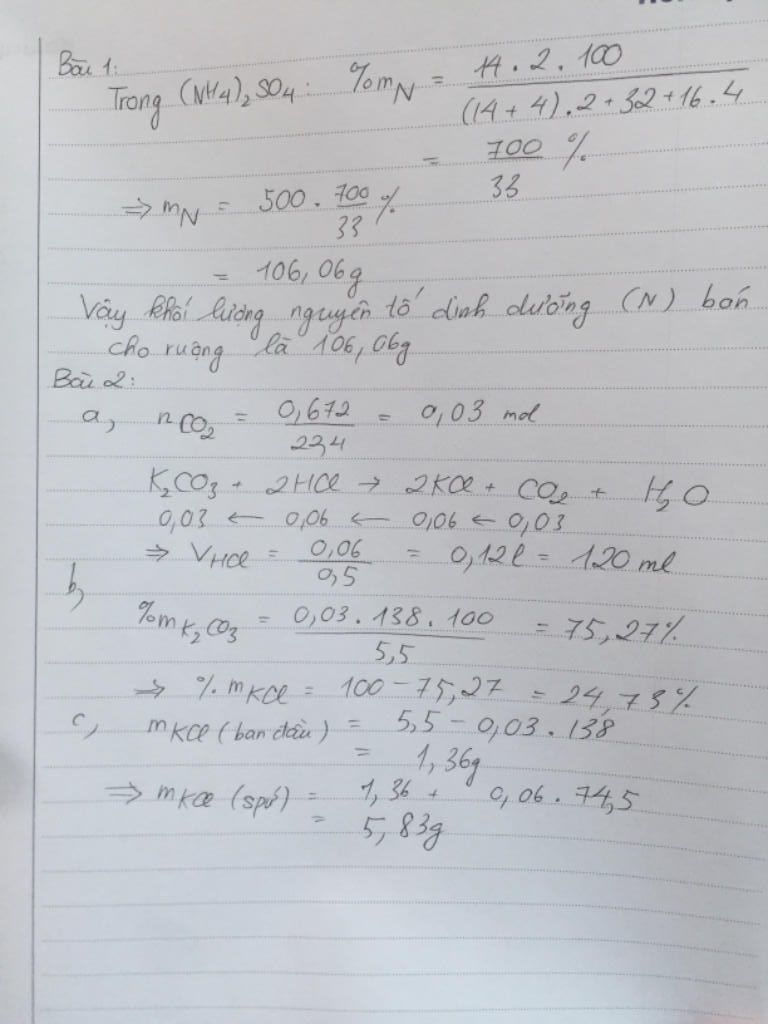 Bài 1:
Trong (NH4)₂SO₄: %m_N = 14 . 2 . 100 / (14 + 4) . 2 + 32 + 16 . 4
= 700/33 %
=> m_N = 500 . 700/33 %
= 106,06g
Vậy khối lượng nguyên tố dinh dưỡng (N) bón
cho ruộng là 106,06g
Bài 2:
a, n_CO₂ = 0,672/22,4 = 0,03 mol
K₂CO₃ + 2HCl → 2KCl + CO₂ + H₂O
0,03 ← 0,06 ← 0,06 ← 0,03
=> V_HCl = 0,06/0,5 = 0,12l = 120 ml
b,
%m_K₂CO₃ = 0,03 . 138 . 100 / 5,5 = 75,27%
=> %m_KCl = 100 - 75,27 = 24,73%
c, m_KCl (ban đầu) = 5,5 - 0,03 . 138
= 1,36g
=> m_KCl (spứ) = 1,36 + 0,06 . 74,5
= 5,83g